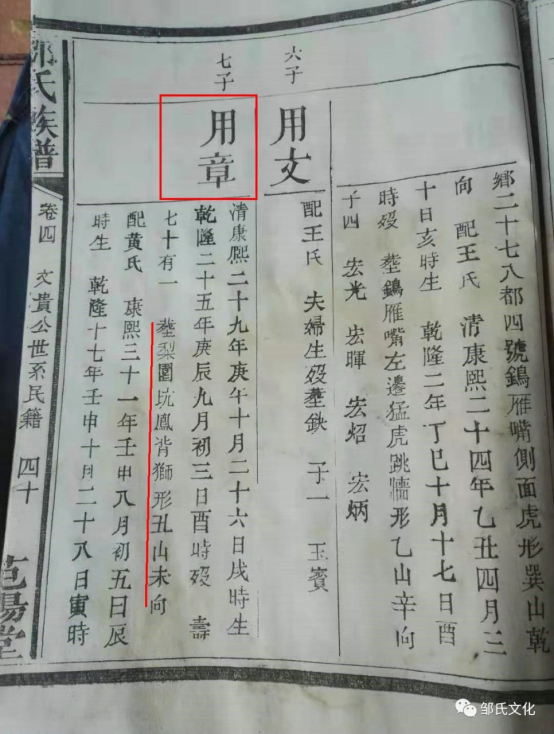 鄉二十七八都四號鷂雁嘴側面虎形巽山乾
向 配王氏 清康熙二十四年乙丑四月三
十日亥時生 乾隆二年丁巳十月十七日酉
時歿 塟鷂雁嘴左邊猛虎跳墻形乙山辛向
子四 宏光 宏暉 宏炤 宏炳
六子
用文
配王氏 夫婦生歿塟缺 子一 玉賓
七子
用章
清康熙二十九年庚午十月二十六日戌時生
乾隆二十五年庚辰九月初三日酉時歿 壽
七十有一 塟梨園坑鳳背獅形丑山未向
配黃氏 康熙三十一年壬申八月初五日辰
時生 乾隆十七年壬申十月二十八日寅時
鄒氏族譜
卷四 文貴公世系民籍 四十
范陽堂
邹氏文化